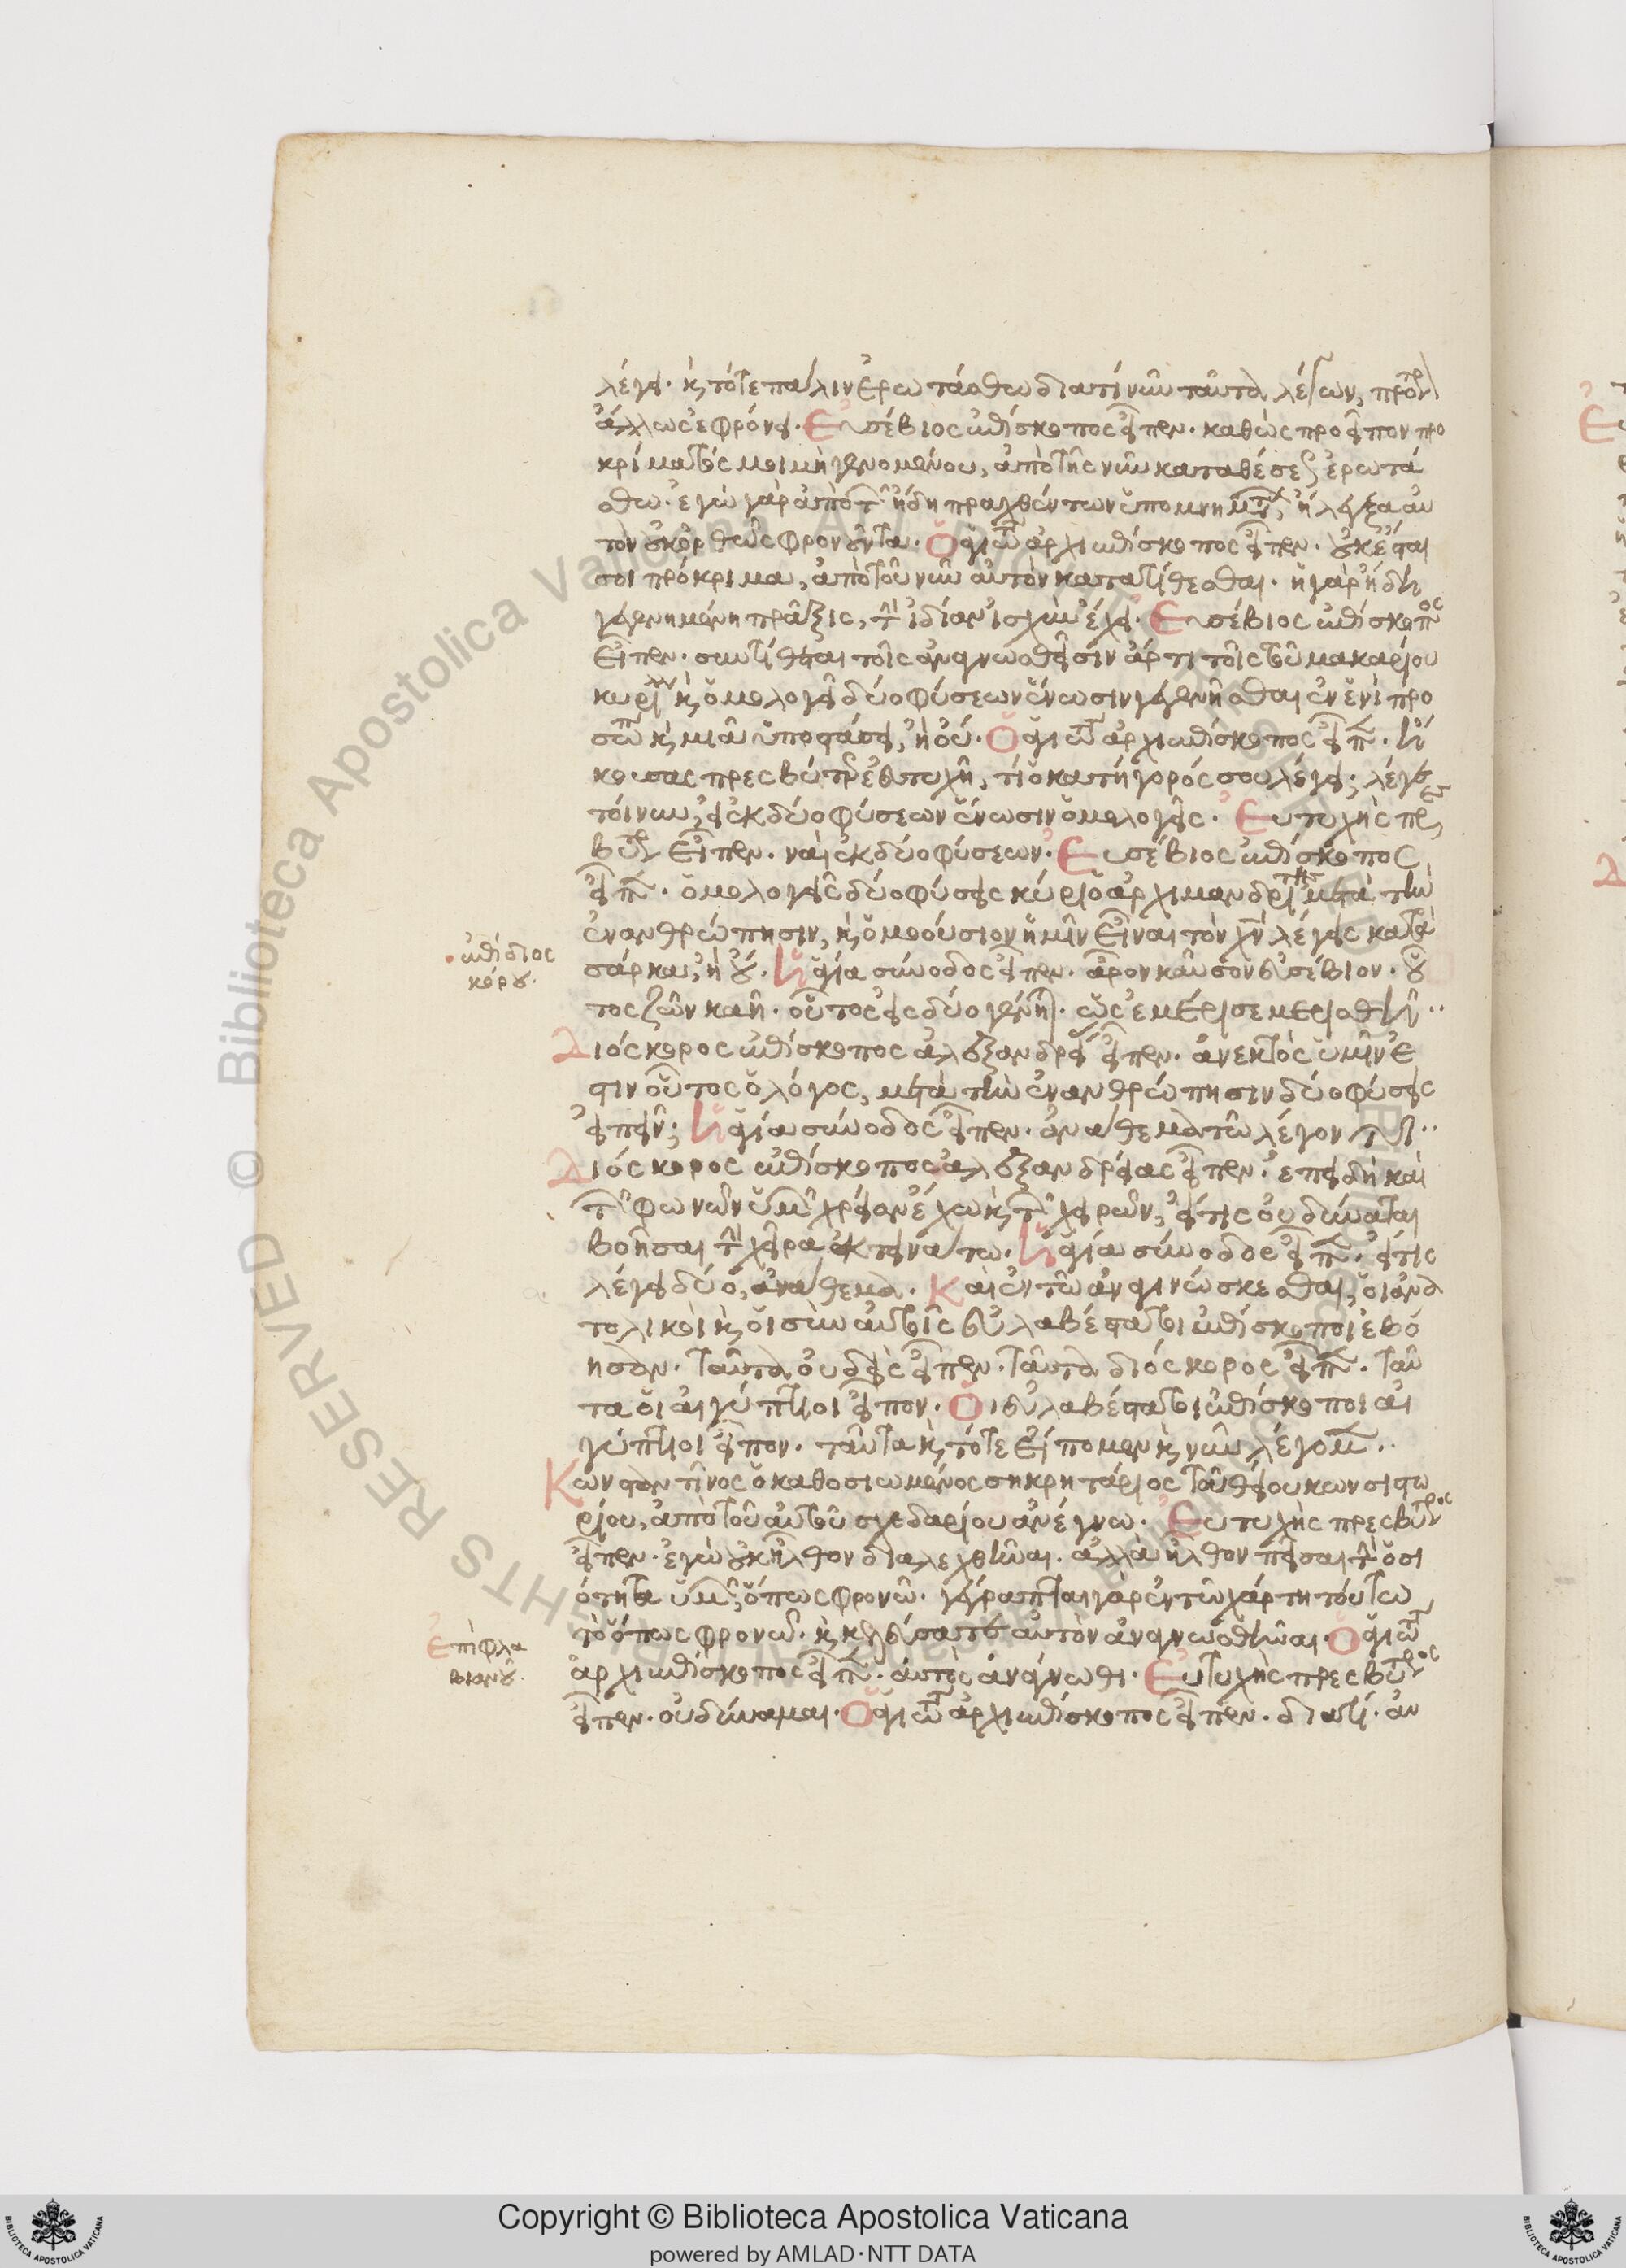 λέγει· κ τότε πάλιν ἐρωτάσθω διατί νῦν ταῦτα λέγων, πρότερον
ἄλλως ἐφρόνει· Εὐσέβιος ἐπίσκοπος εἶπεν· καθὼς προεῖπον προ
κρίματός μοι μὴ γενομένου, ἀπὸ τῆς νῦν καταθέσεως ἐρωτά
σθω· ἐγὼ γὰρ ἀπὸ τῶν ἤδη πραχθέντων ὑπομνημάτων, ἤλεγξα αὐ
τὸν οὐκ ὀρθῶς φρονοῦντα· Ὁ ἁγιώτατος ἀρχιεπίσκοπος εἶπεν· οὐκ ἔσται
σοι πρόκριμα, ἀπὸ τοῦ νῦν αὐτὸν κατατίθεσθαι· ἡ γὰρ ἤδη
γεγενημένη πρᾶξις, τὴν ἰδίαν ἰσχὺν ἔχει· Εὐσέβιος ἐπίσκοπος
εἶπεν· συντίθεται τοῖς ἀναγνωσθεῖσιν ἄρτι τοῖς τοῦ μακαρίου
κυρίλλου κ ὁμολογεῖ δύο φύσεων ἕνωσιν γεγενῆσθαι ἐν ἑνὶ προ
σώπω κ μιᾶ ὑποστάσει, ἢ οὔ· Ὁ ἁγιώτατος ἀρχιεπίσκοπος εἶπεν· ἤ
κουσας πρεσβύτερε εὐτυχῆ, τί ὁ κατήγορός σου λέγει; λέγε
τοίνυν, εἰ ἐκ δύο φύσεων ἕνωσιν ὁμολογεῖς· Εὐτυχὴς πρεσ
βύτερος εἶπεν· ναὶ ἐκ δύο φύσεων· Εὐσέβιος ἐπίσκοπος
εἶπεν· ὁμολογεῖς δύο φύσεις κύριε ὁ ἀρχιμανδρίτης μετὰ τὴν
ἐνανθρώπησιν, κ ὁμοούσιον ἡμῖν εἶναι τὸν χν λέγεις κατὰ
ἐπὶ διος
κόρου·
σάρκα, ἢ οὔ· Ἡ ἁγία σύνοδος εἶπεν· ἆρον καῦσον εὐσέβιον· οὗ
τος ζῶν καῆ· οὗτος εἰς δύο γένηται· ὡς ἐμέρισε μερισθῆ··
Διόσκορος ἐπίσκοπος ἀλεξανδρείας εἶπεν· ἀνεκτὸς ὑμῖν ἐ
στιν οὗτος ὁ λόγος, μετὰ τὴν ἐνανθρώπησιν δύο φύσεις
εἰπεῖν; Ἡ ἁγία σύνοδος εἶπεν· ἀνάθεμα τῶ λέγοντι··
Διόσκορος ἐπίσκοπος ἀλεξανδρείας εἶπεν· ἐπειδὴ καὶ
τῶν φωνῶν ὑμῶν χρείαν ἔχω κ τῶν χειρῶν, εἴ τις οὐ δύναται
βοῆσαι τὴν χεῖρα ἐκτεινάτω· Ἡ ἁγία σύνοδος εἶπεν· εἴ τις
λέγει δύο, ἀνάθεμα· Καὶ ἐν τῶ ἀναγινώσκεσθαι, οἱ ἀνα
τολικοὶ κ οἱ σὺν αὐτοῖς εὐλαβέστατοι ἐπίσκοποι ἐβό
ησαν· ταῦτα οὐδεὶς εἶπεν· ταῦτα διόσκορος εἶπεν· ταῦ
τα οἱ αἰγύπτιοι εἶπον· Οἱ εὐλαβέστατοι ἐπίσκοποι αἰ
γύπτιοι εἶπον· ταῦτα κ τότε εἴπομεν κ νῦν λέγομεν··
Κωνσταντῖνος ὁ καθοσιωμένος σηκρητάριος τοῦ θείου κωνσιστω
ρίου, ἀπὸ τοῦ αὐτοῦ σχεδαρίου ἀνέγνω· Εὐτυχὴς πρεσβύτερος
εἶπεν· ἐγὼ οὐκ ἦλθον διαλεχθῆναι· ἀλλὰ ἦλθον πεῖσαι τὴν ὁσι
ότητα ὑμῶν, ὅπως φρονῶ· γέγραπται γὰρ ἐν τῶ χάρτη τούτω
τὸ ὅπως φρονῶ· κ κελεύσατε αὐτὸν ἀναγνωσθῆναι· Ὁ ἁγιώτατος
Ἐπὶ φλα
βιανοῦ·
ἀρχιεπίσκοπος εἶπεν· αὐτὸς ἀνάγνωθι· Εὐτυχὴς πρεσβύτερος
εἶπεν· οὐ δύναμαι· Ὁ ἁγιώτατος ἀρχιεπίσκοπος εἶπεν· διατί· ἀν
Copyright © Biblioteca Apostolica Vaticana
powered by AMLAD·NTT DATA